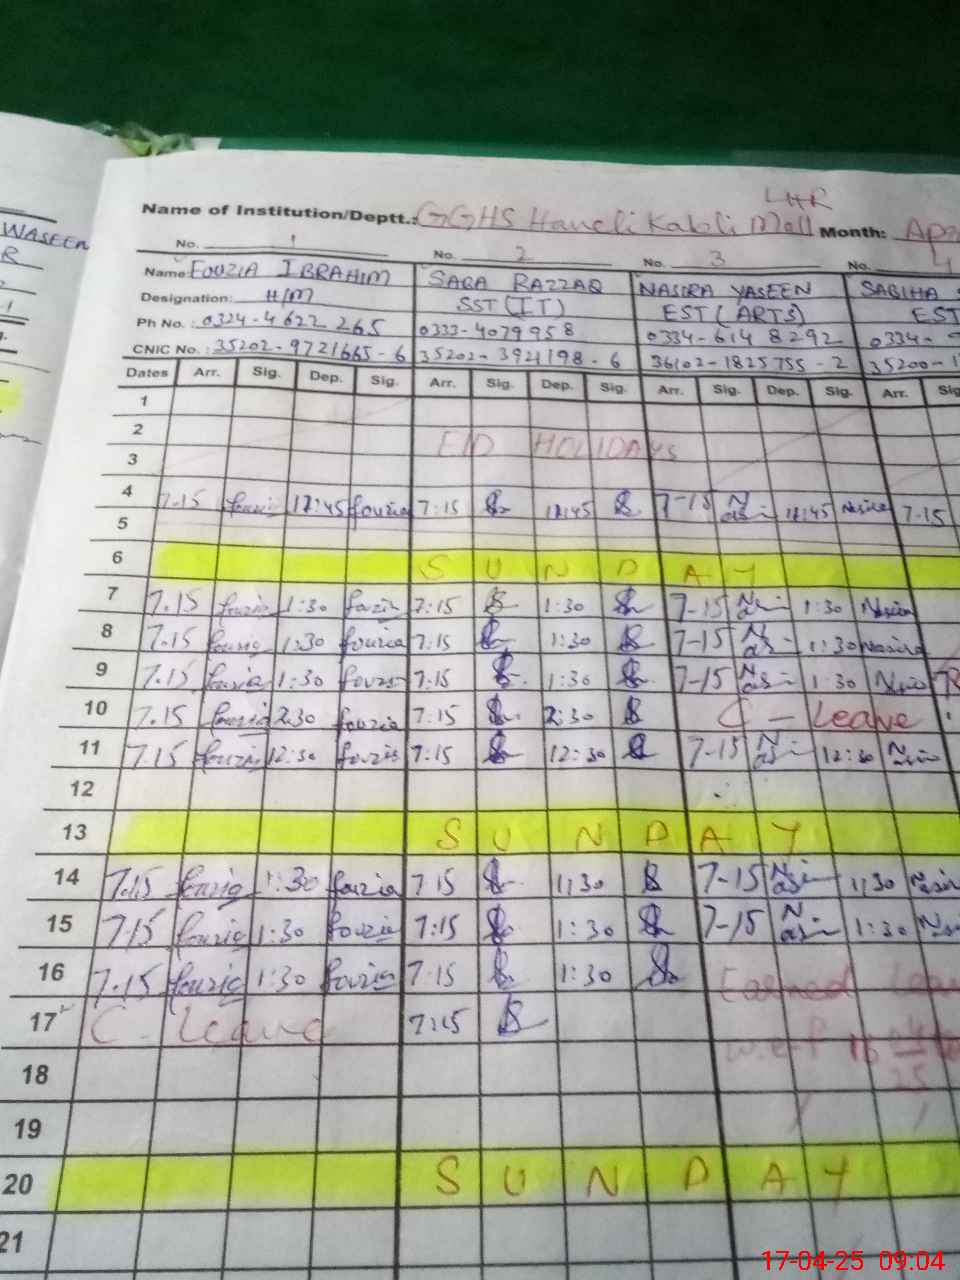 WASEEM
R
LHR
Name of Institution/Deptt.: GGHS Haveli Kabli Mall Month: Apr
No. 1 No. 2 No. 3 No. 4
Name FOUZIA IBRAHIM SABA RAZZAQ NASIRA YASEEN SABIHA
Designation: H/M SST (IT) EST (ARTS) EST
Ph No.: 0324-4622265 0333-4079958 0334-6148292 0334-
CNIC No.: 35202-9721665-6 35202-3921198-6 36102-1825755-2 35200-1
Dates Arr. Sig. Dep. Sig. Arr. Sig. Dep. Sig. Arr. Sig. Dep. Sig. Arr. Sig
1
2 EID HOLIDAYS
3
4 7.15 fouzia 12:45 fouzia 7:15 12:45 7-15 Nasira 12:45 Nasira 7-15
5
6 SUNDAY
7 7.15 fouzia 1:30 fouzia 7:15 1:30 7-15 Nasira 1:30 Nasira
8 7.15 fouzia 1:30 fouzia 7:15 1:30 7-15 Nasira 1:30 Nasira
9 7.15 fouzia 1:30 fouzia 7:15 1:30 7-15 Nasira 1:30 Nasira
10 7.15 fouzia 2:30 fouzia 7:15 2:30 C - Leave
11 7.15 fouzia 12:30 fouzia 7:15 12:30 7-15 Nasira 12:30 Nasira
12
13 SUNDAY
14 7.15 fouzia 1:30 fouzia 7:15 1:30 7-15 Nasira 1:30 Nasira
15 7.15 fouzia 1:30 fouzia 7:15 1:30 7-15 Nasira 1:30 Nasira
16 7.15 fouzia 1:30 fouzia 7:15 1:30 Earned Leave
17 C. Leave 7:15 w.e.f 16
18
19
20 SUNDAY
21
17-04-25 09:04